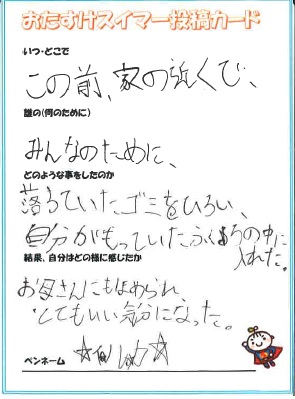 おたすけスイマー投稿カード
いつ・どこで
この前、家の近くで、
誰の(何のために)
みんなのために、
どのような事をしたのか
落ちていたゴミをひろい、
自分がもっていたふくろの中に
入れた。
結果、自分はどの様に感じたか
お母さんにもほめられ、
とてもいい気分になった。
ペンネーム